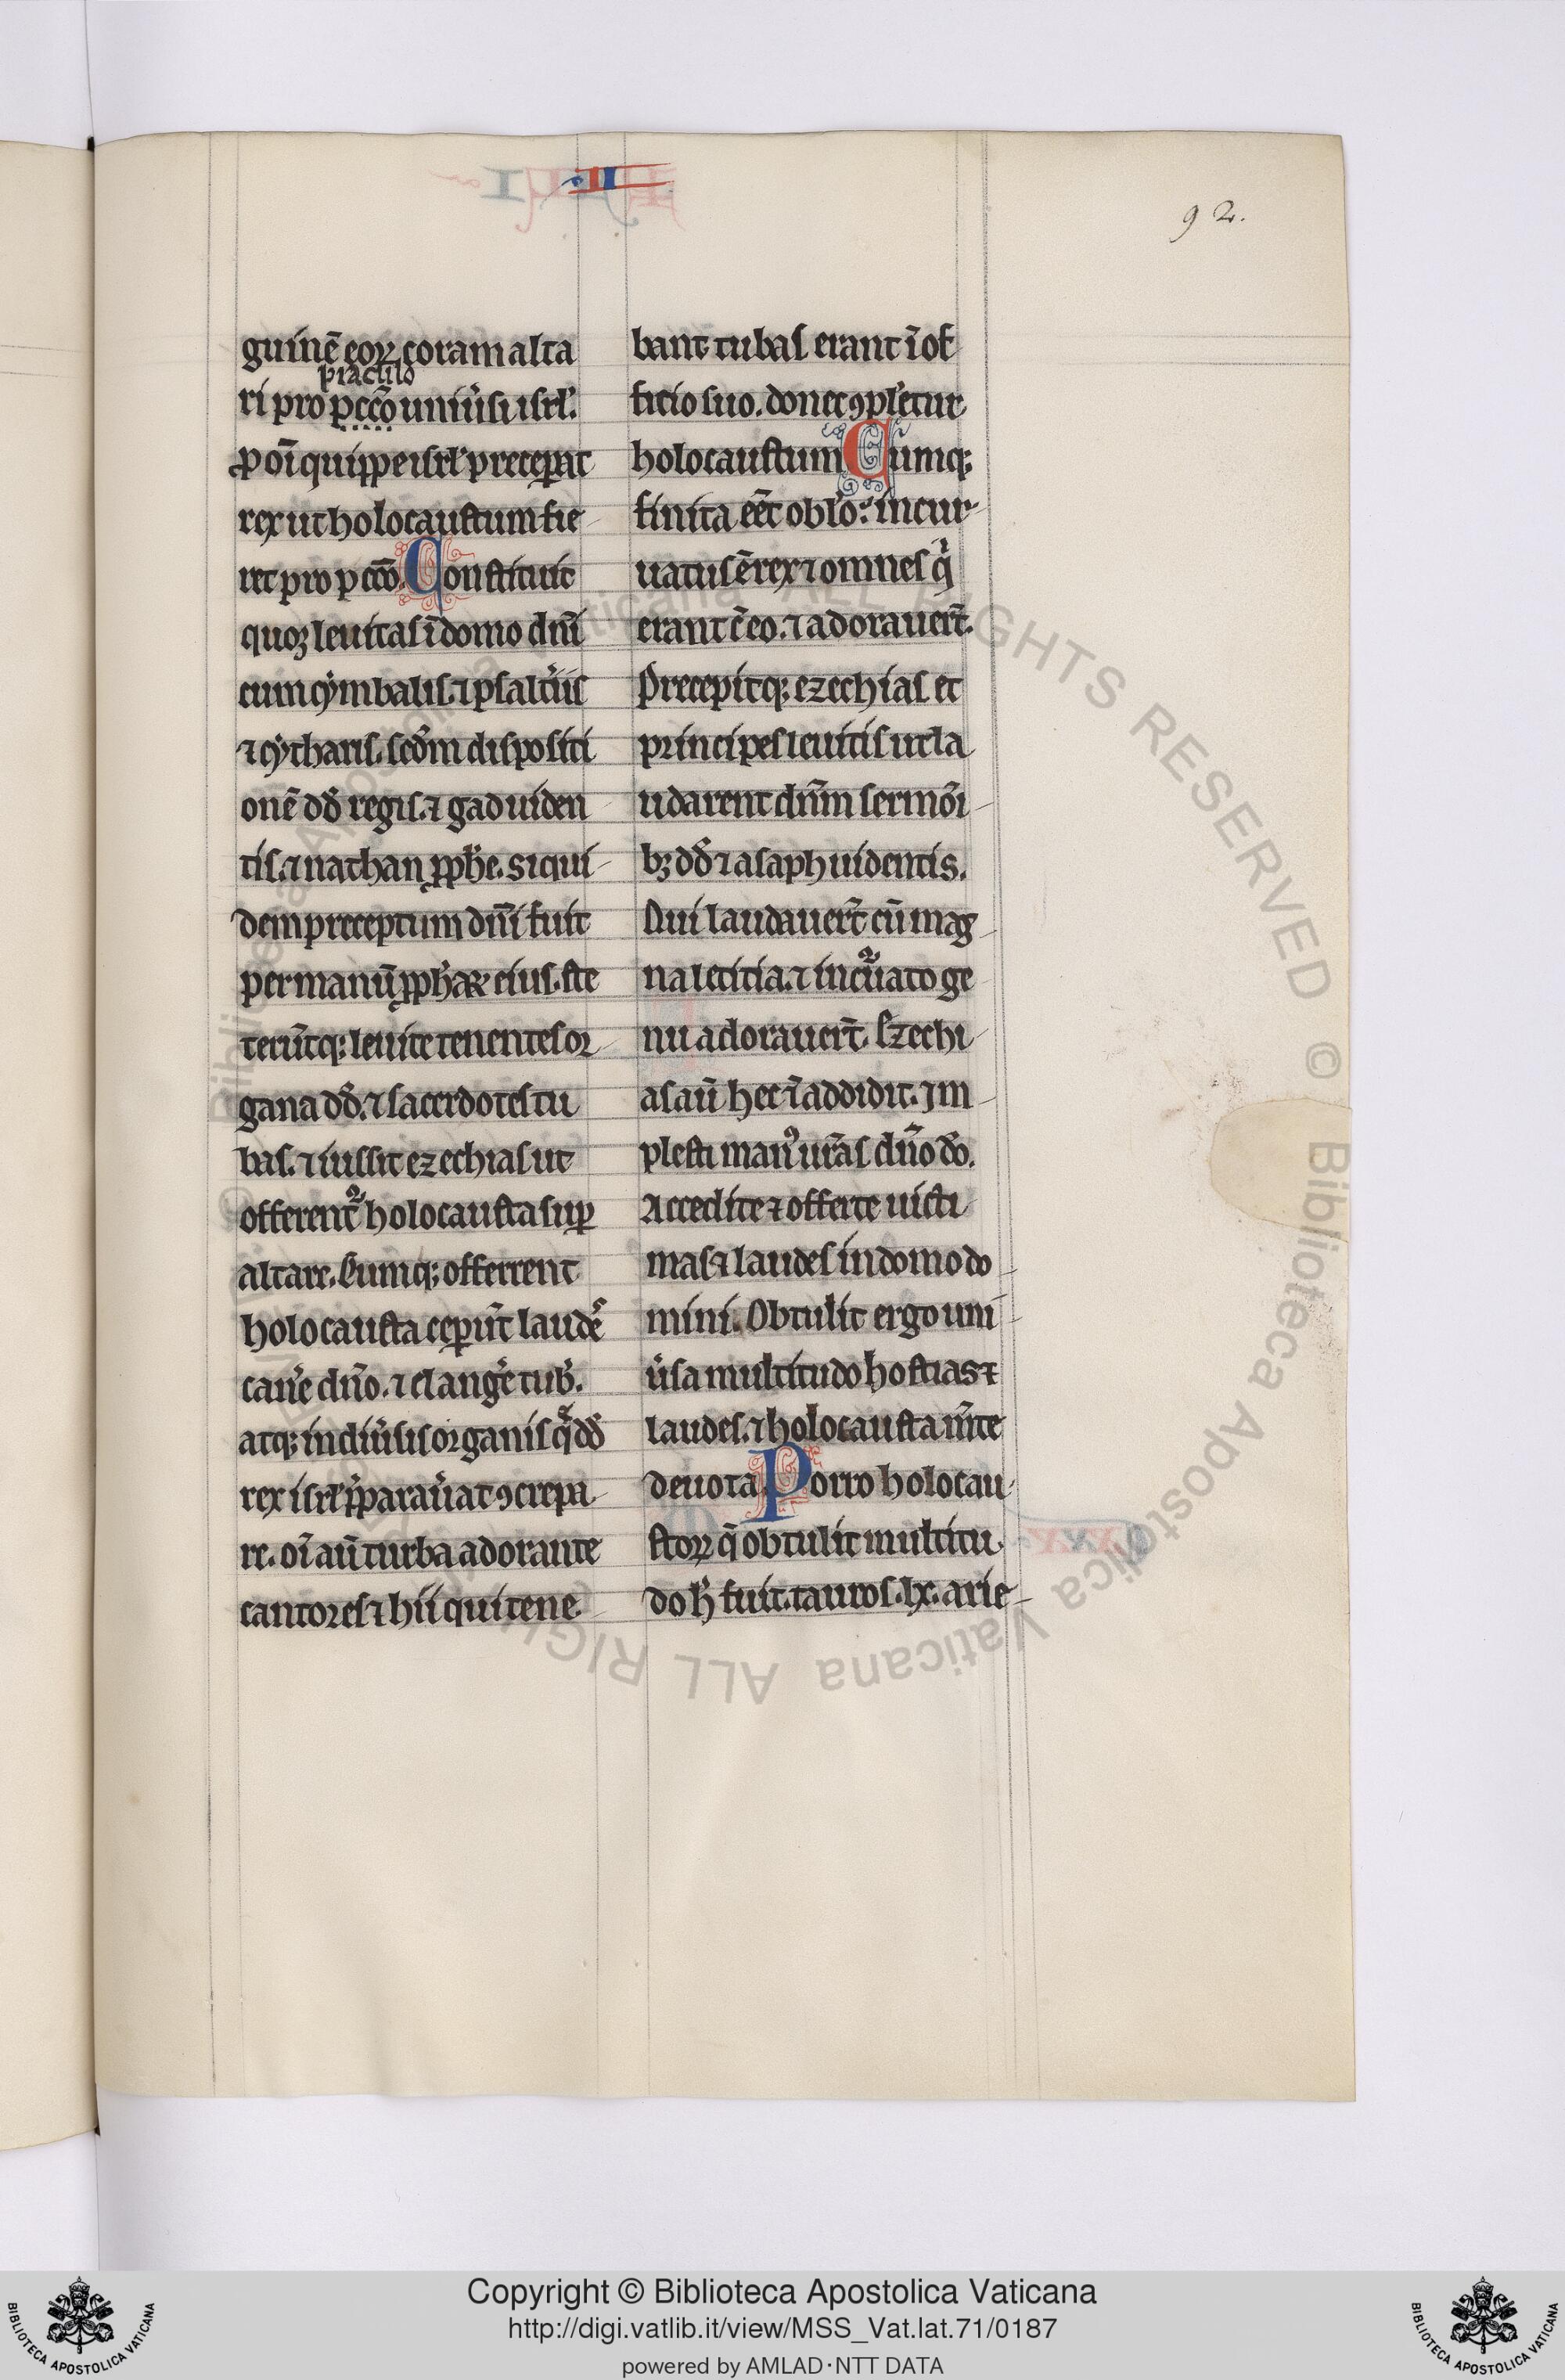 II.
92.
guinē eoꝝ coram alta
piaculo
ri pro pccō uniu̓si isrl̓.
ꝓ oī quippe isrl̓ precep̱at
rex ut holocaustum fie
ret pro pccō. Constituit
quoꝫ leuitas ī domo dn̄i
cum cẏmbalis. ⁊ psalt̓iis
⁊ cẏtharis. scd̓m dispositi
onē dd̓ regis. ⁊ gad uiden
tis. ⁊ nathan ꝓph̓e. siqui
dem preceptum dn̄i fuit
per manū ꝓph̓aꝝ eius. ste
terūtq; leuite tenentes or
gana dd̓. ⁊ sacerdotes tu
bas. ⁊ iussit ezechias ut
offerent᷑ holocausta suꝑ
altare. Cumq; offerrent
holocausta ceꝑūt laudes̓
can̓e dn̄o. ⁊ clang̓e tub̓.
atq; in diu̓sis organis q̄ dd̓
rex isrl̓ p̄parau̓at ꝯcrepa
re. oī aū turba adorante
cantores ⁊ hii qui tene
bant tubas erant ī of
ficio suo. donec ꝯpl̓etur
holocaustum Cumq;
finita eēt obl̓o. incur
uatus ē rex ⁊ omnes qͥ
erant c̄ eo. ⁊ adorauer̄t.
Precepitq; ezechias et
principes leuitis ut la
udarent dn̄m sermōi
bꝫ dd̓ ⁊ asaph uidentis.
Qui laudauer̄t cū mag
na letitia. ⁊ incu᷑ato ge
nu adorauer̄t. Ezechi
as aū hec ī addidit. Im
plesti manꝰ ur̄as dn̄o dō.
Accedite ⁊ offerte uicti
mas ⁊ laudes in domo do
mini. Obtulit ergo uni
u̓sa multitudo hostias ⁊
laudes. ⁊ holocausta m̄te
deuota Porro holocau
stoꝝ q̄ obtulit multitu
do h̓ fuit. tauros. lx. arie
Copyright © Biblioteca Apostolica Vaticana
http://digi.vatlib.it/view/MSS_Vat.lat.71/0187
powered by AMLAD·NTT DATA
BIBLIOTECA APOSTOLICA VATICANA
BIBLIOTECA APOSTOLICA VATICANA
© Biblioteca Apostolica Vaticana ALL RIGHTS RESERVED
© Biblioteca Apostolica Vaticana ALL RIGHTS RESERVED